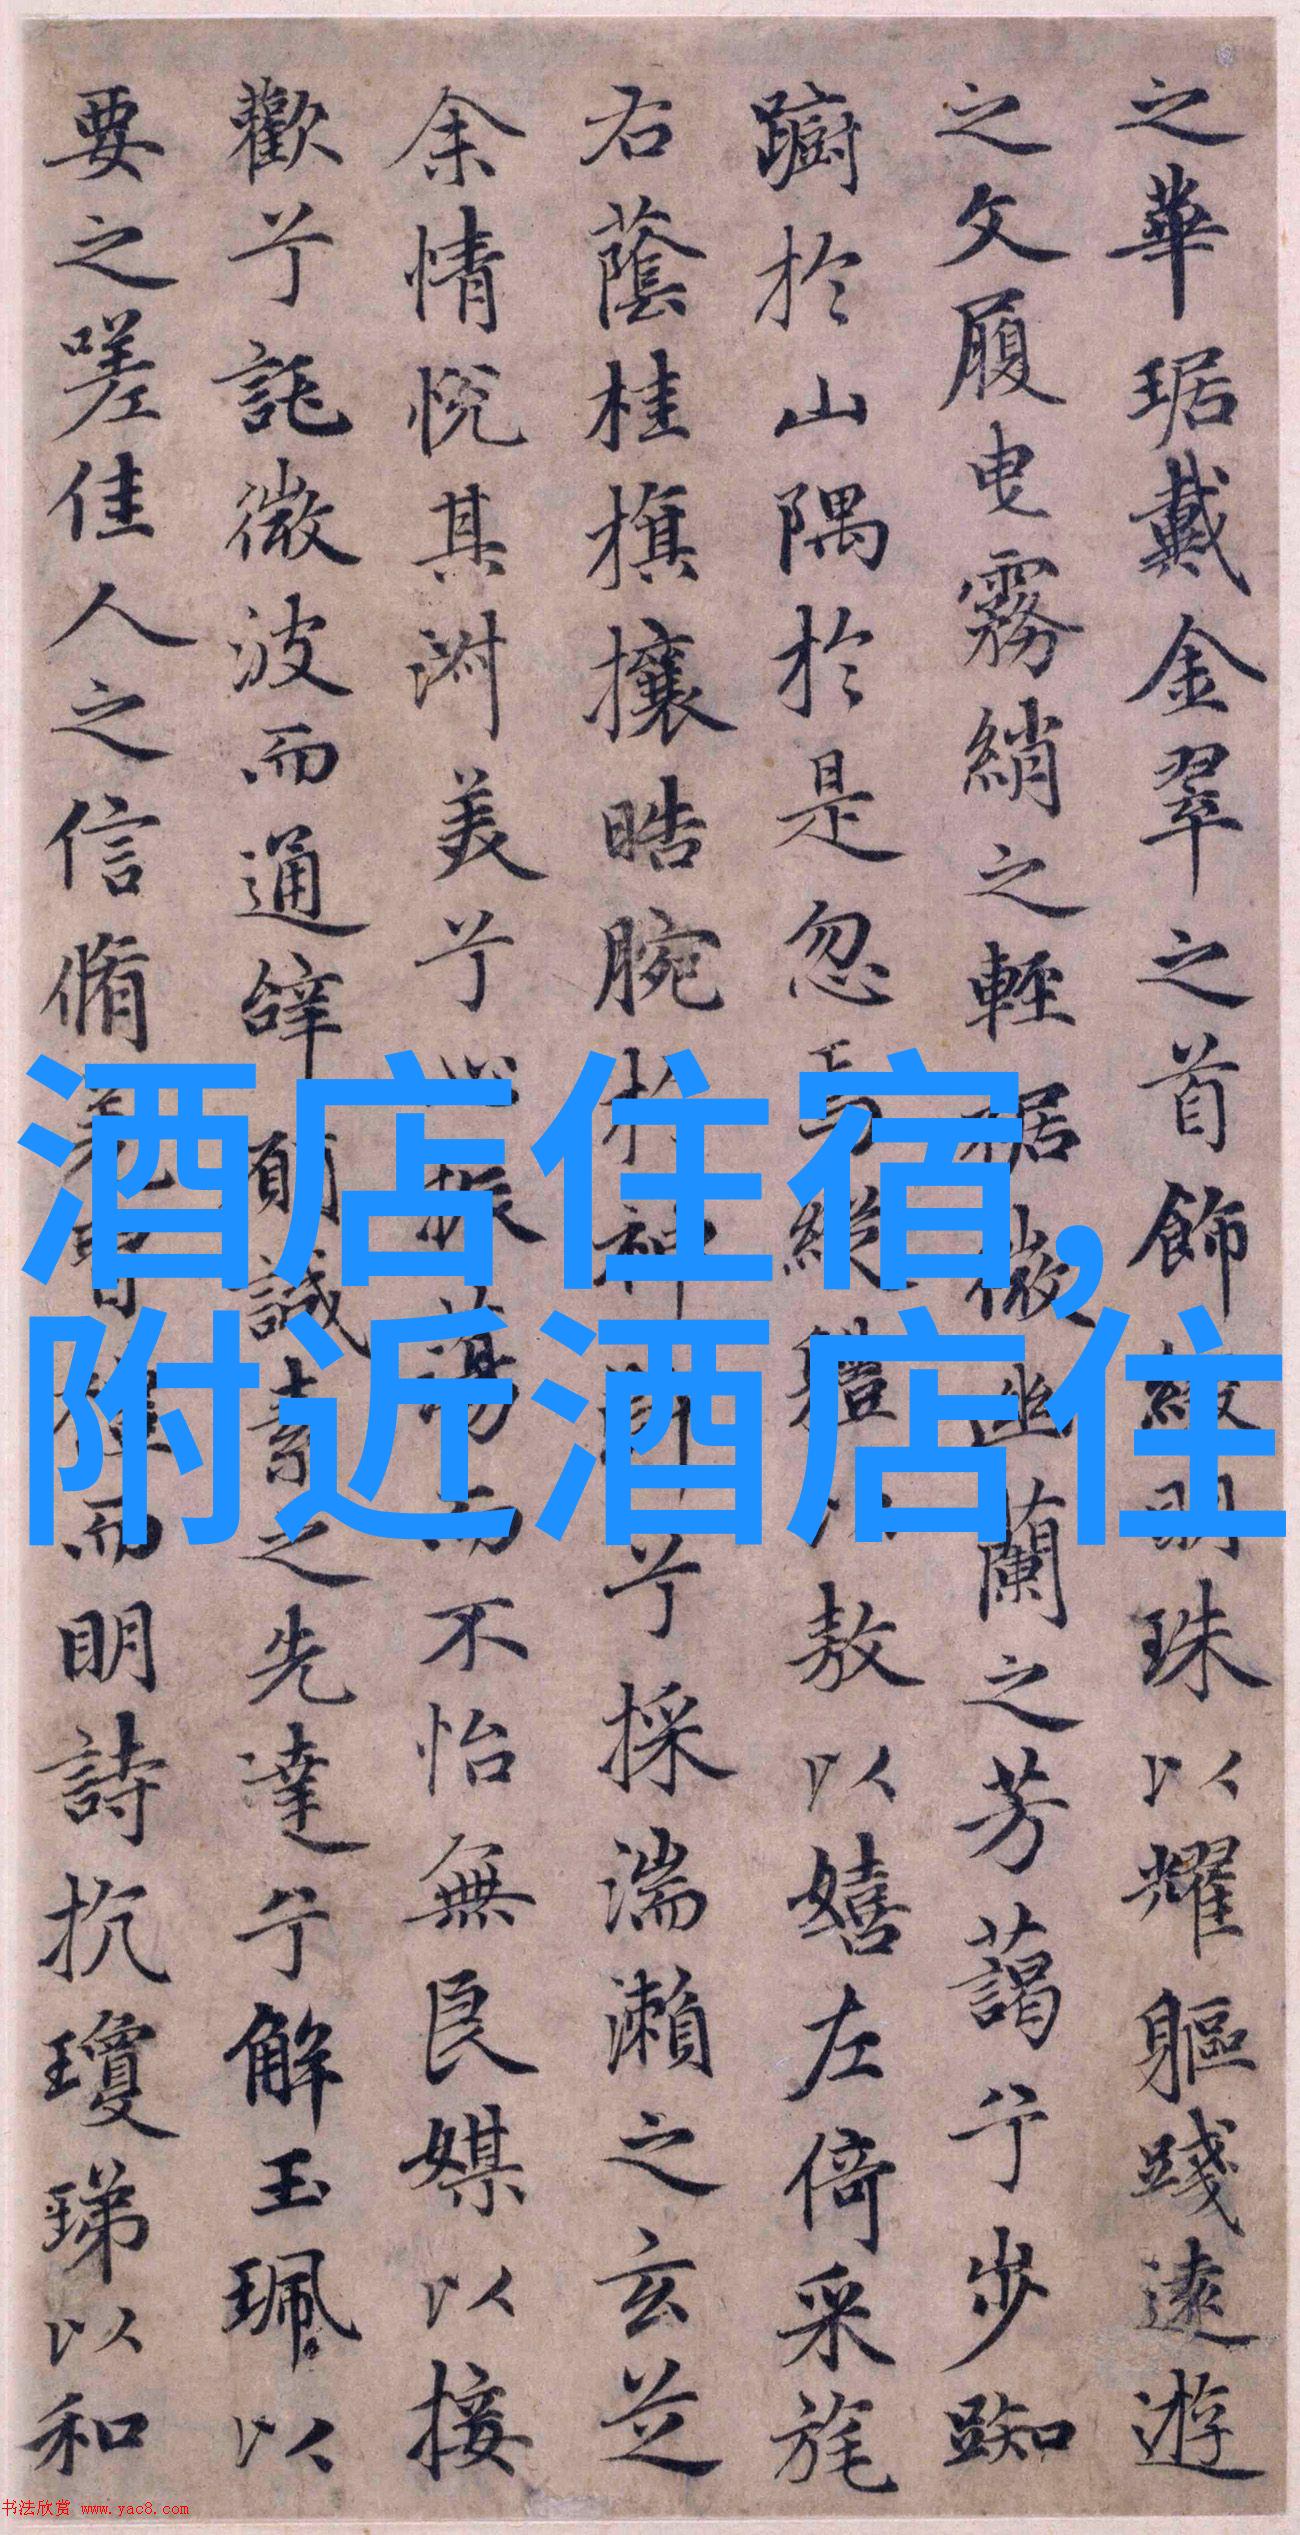 之華琚戴金翠之首飾綴明珠以耀軀踐遠遊
之文履曳霧綃之輕裾微幽蘭之芳藹兮步踟
躕於山隅於是忽焉縱體以敖以嬉左倚采旄
右蔭桂旗攘皓腕於神滸兮採湍瀨之玄芝
余情悅其淑美兮心振蕩而不怡無良媒以接
歡兮託微波而通辭願誠素之先達兮解玉珮以
要之嗟佳人之信脩羌習禮而明詩抗瓊珶以和
酒店住宿,
附近酒店住
书法欣赏 www.yac8.com